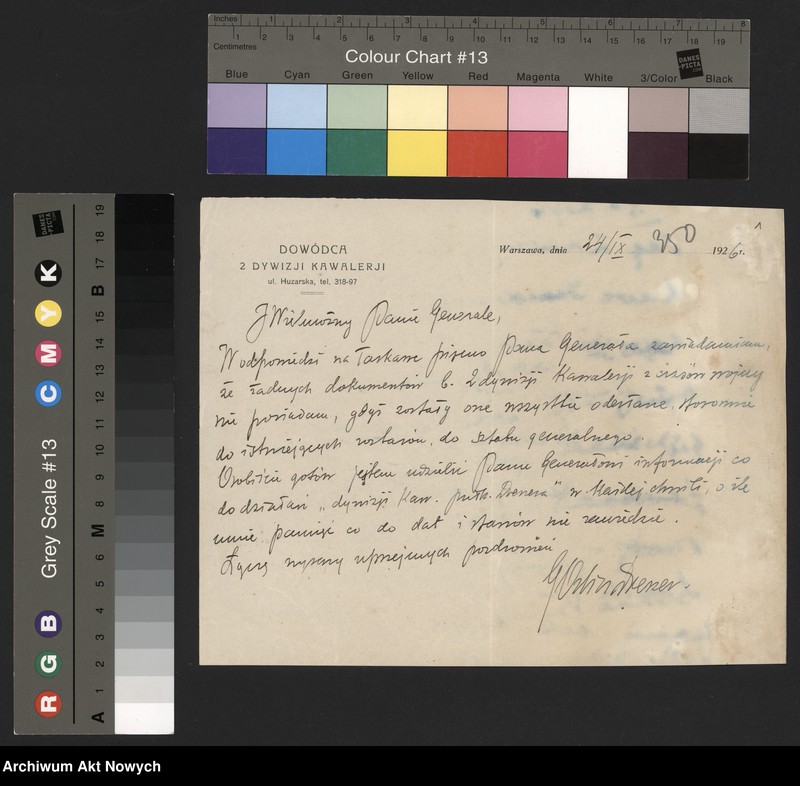 Inches 1 2 3 4 5 6 7 8
Centimetres 1 2 3 4 5 6 7 8 9 10 11 12 13 14 15 16 17 18 19
Colour Chart #13
DANES -PICTA .COM
Blue Cyan Green Yellow Red Magenta White 3/Color Black
Grey Scale #13
R G B C M Y K
DANES -PICTA .COM
A 1 2 3 4 5 6 M 8 9 10 11 12 13 14 15 B 17 18 19
DOWÓDCA
2 DYWIZJI KAWALERJI
ul. Huzarska, tel. 318-97
Warszawa, dnia 24/IX 350 1926 r.
JWielmożny Panie Generale,
W odpowiedzi na łaskawe pismo Pana Generała zawiadamiam,
że żadnych dokumentów b. 2 dywizji Kawalerji z czasów wojny
nie posiadam, gdyż zostały one wszystkie odesłane, stosownie
do istniejących rozkazów, do sztabu generalnego.
Osobiście gotów jestem udzielić Panu Generałowi informacji co
do działań „dywizji Kaw. pułk. Dreszera" w każdej chwili, o ile
mnie pamięć co do dat i stanów nie zawiedzie.
Łączę wyrazy uprzejmych pozdrowień
GOrliczDreszer.
Archiwum Akt Nowych